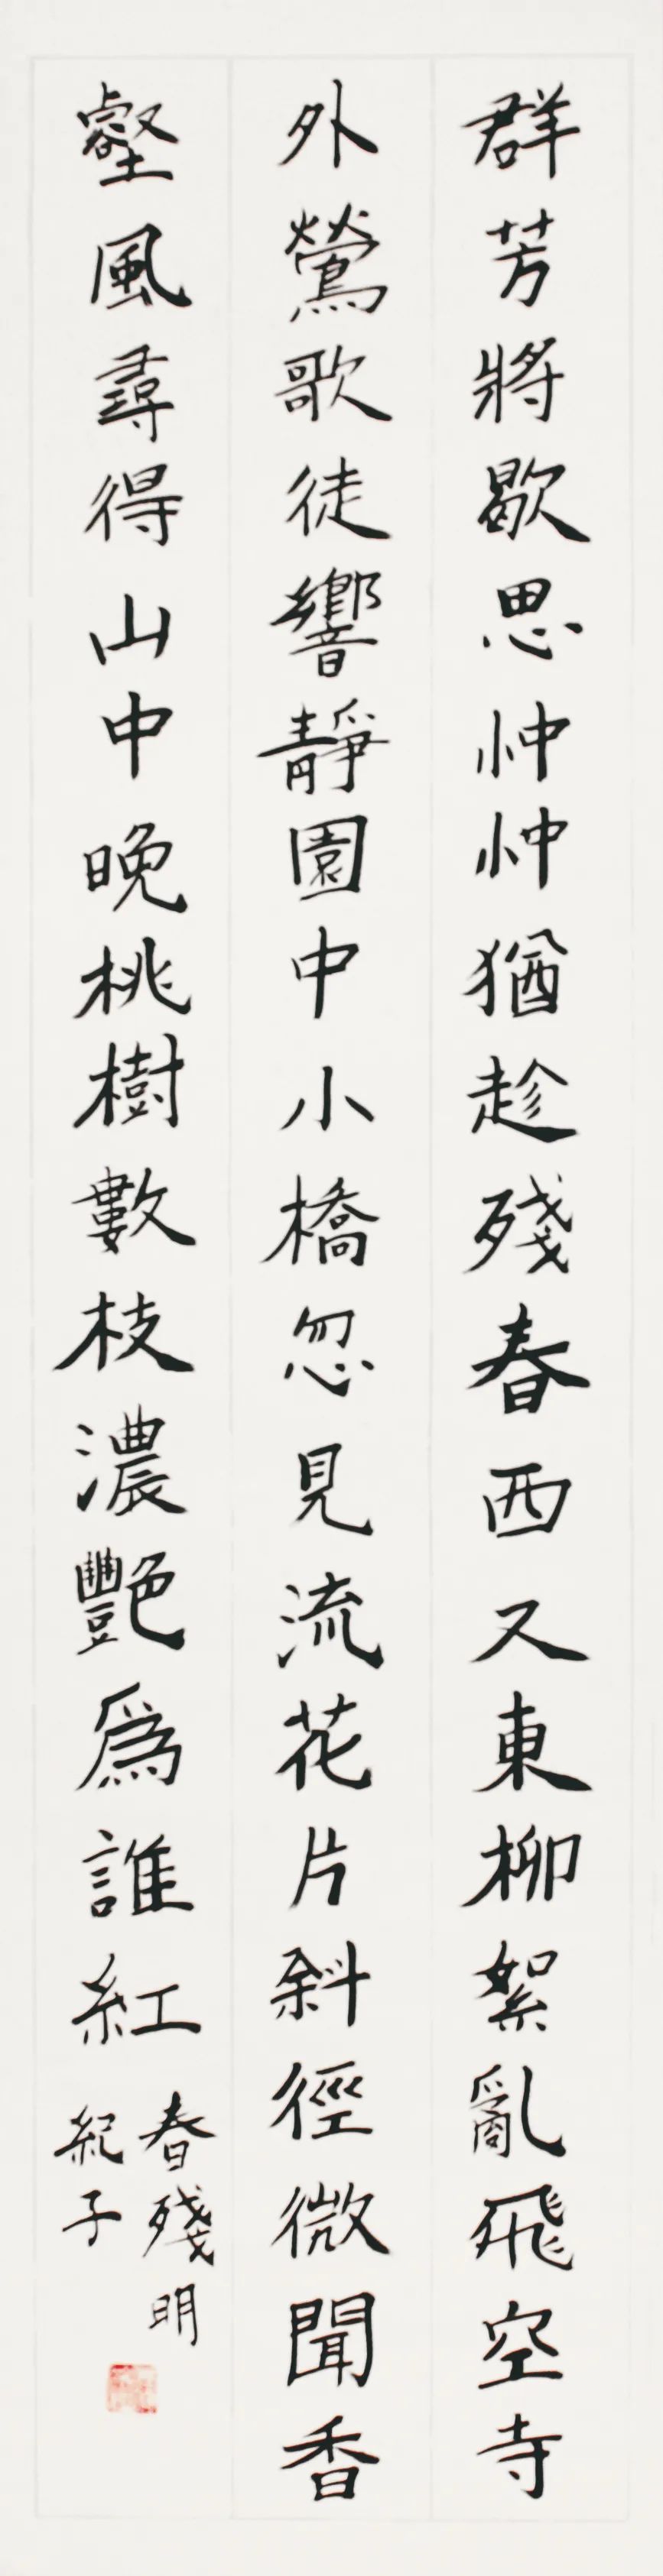 群芳將歇思忡忡猶趁殘春西又東柳絮亂飛空寺
外鶯歌徒響靜園中小橋忽見流花片斜徑微聞香
壑風尋得山中晚桃樹數枝濃艷爲誰紅
春殘明
紀子